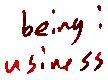 being :
usiness